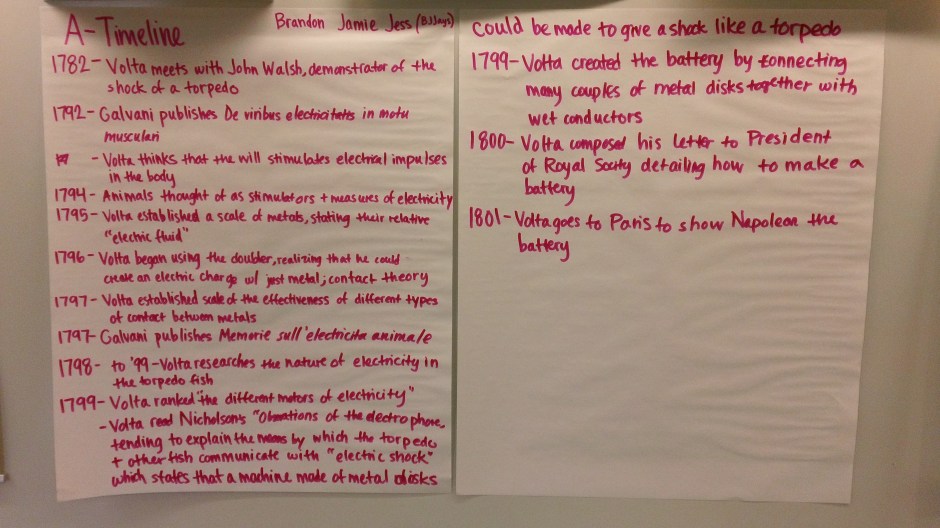 A-Timeline
Brandon Jamie Jess (BJJays)
1782- Volta meets with John Walsh, demonstrator of the
shock of a torpedo
1792- Galvani publishes De viribus electricitatis in motu
musculari
- Volta thinks that the will stimulates electrical impulses
in the body
1794- Animals thought of as stimulators + measures of electricity
1795- Volta established a scale of metals, stating their relative
"electric fluid"
1796- Volta began using the doubler, realizing that he could
create an electric charge w/ just metal; contact theory
1797- Volta established scale of the effectiveness of different types
of contact between metals
1797- Galvani publishes Memorie sull'electricita animale
1798- to '99-Volta researches the nature of electricity in
the torpedo fish
1799- Volta ranked "the different motors of electricity"
- Volta read Nicholson's "of the electrophore,
tending to explain the means by which the torpedo
+ other fish communicate with "electric shock"
which states that a machine made of metal disks
could be made to give a shock like a torpedo
1799- Volta created the battery by connecting
many couples of metal disks together with
wet conductors
1800- Volta composed his letter to President
of Royal Society detailing how to make a
battery
1801- Volta goes to Paris to show Napoleon the
battery